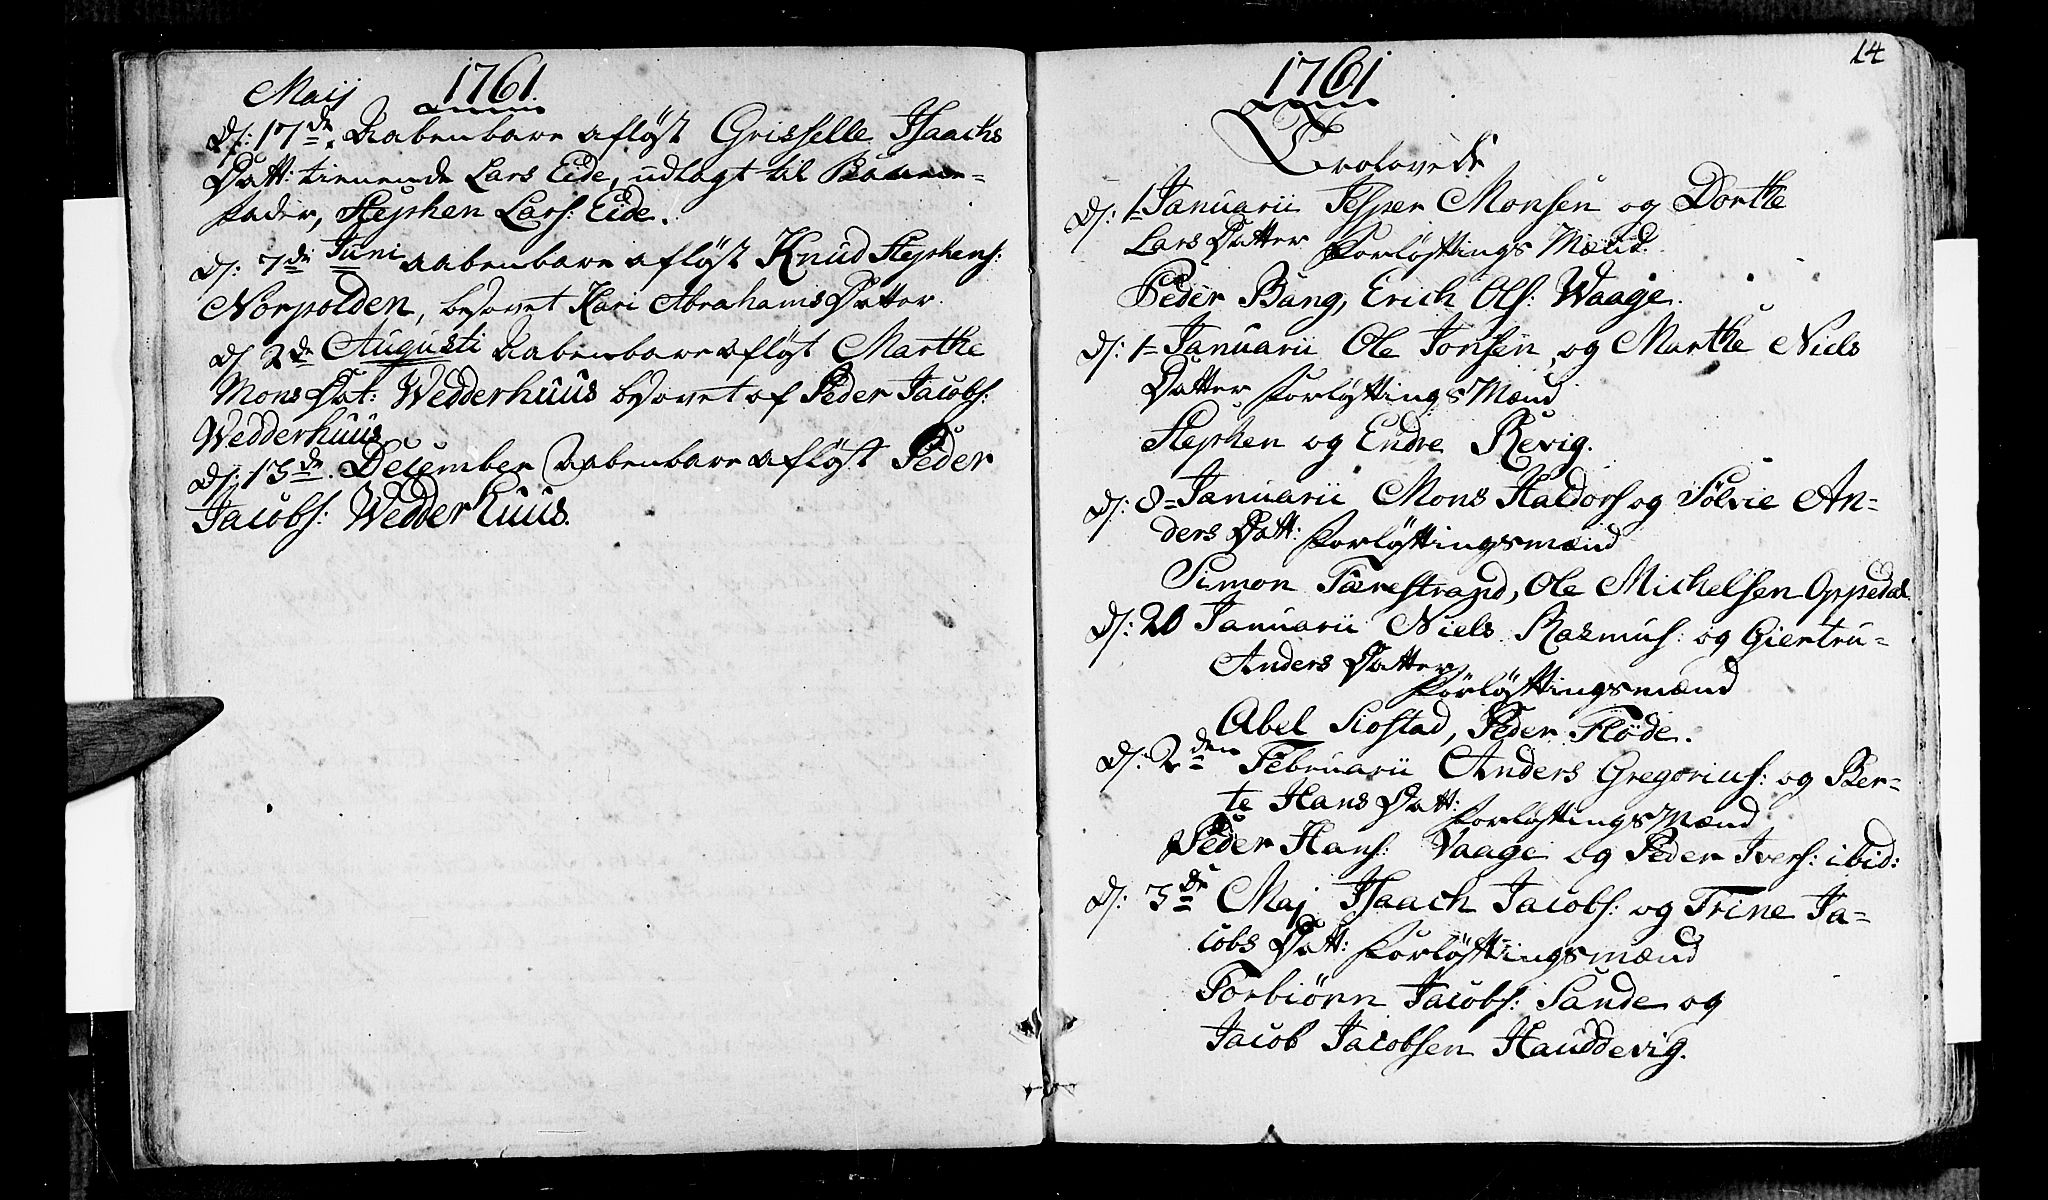 Maij 1761.
D: 17de. Aabenbare afløst Grisselle Isaachs
Datt: tienende Lars Eide, udlagt til Barne-
fader, Stephen Lars: Eide.
D: 7de Juni aabenbare afløst Knud Stephens:
Norpolden, besovet Kari Abrahams Datter.
D: 2de Augusti Aabenbare afløst Marthe
Mons Dat: Wedderhuus besovet af Peder Jacobs:
Wedderhuus
D: 13de. December Aabenbare afløst Peder
Jacobs: Wedderhuus.
14
1761
Trolovede
D: 1- Januarii Jesper Monsen og Dorthe
Lars Datter Forløftings Mænd
Peder Bang, Erich Ols: Waage.
D: 1- Januarii Ole Jonsen og Marthe Niels
Datter Forløftings Mænd
Stephen og Endre Revig.
D: 8- Januarii Mons Haldors og Sølvie An-
ders Datt: Forløftingsmænd
Simon Tærestrand, Ole Michelsen Oppedal
D: 20 Januarii Niels Rasmus: og Giertru-
Anders Datter
Forløftingsmænd
Abel Siostad, Peder Fløde.
D: 2den Februarii Anders Gregorius: og Ber-
te Hans Datt:
Forløftings Mænd
Peder Hans: Vaage og Peder Ivers: ibid:
D: 3de Maj Isaach Jacobs: og Trine Ja-
cobs Datt: Forløftingsmænd
Torbiørn Jacobs: Sande og
Jacob Jacobsen Hauddevig.